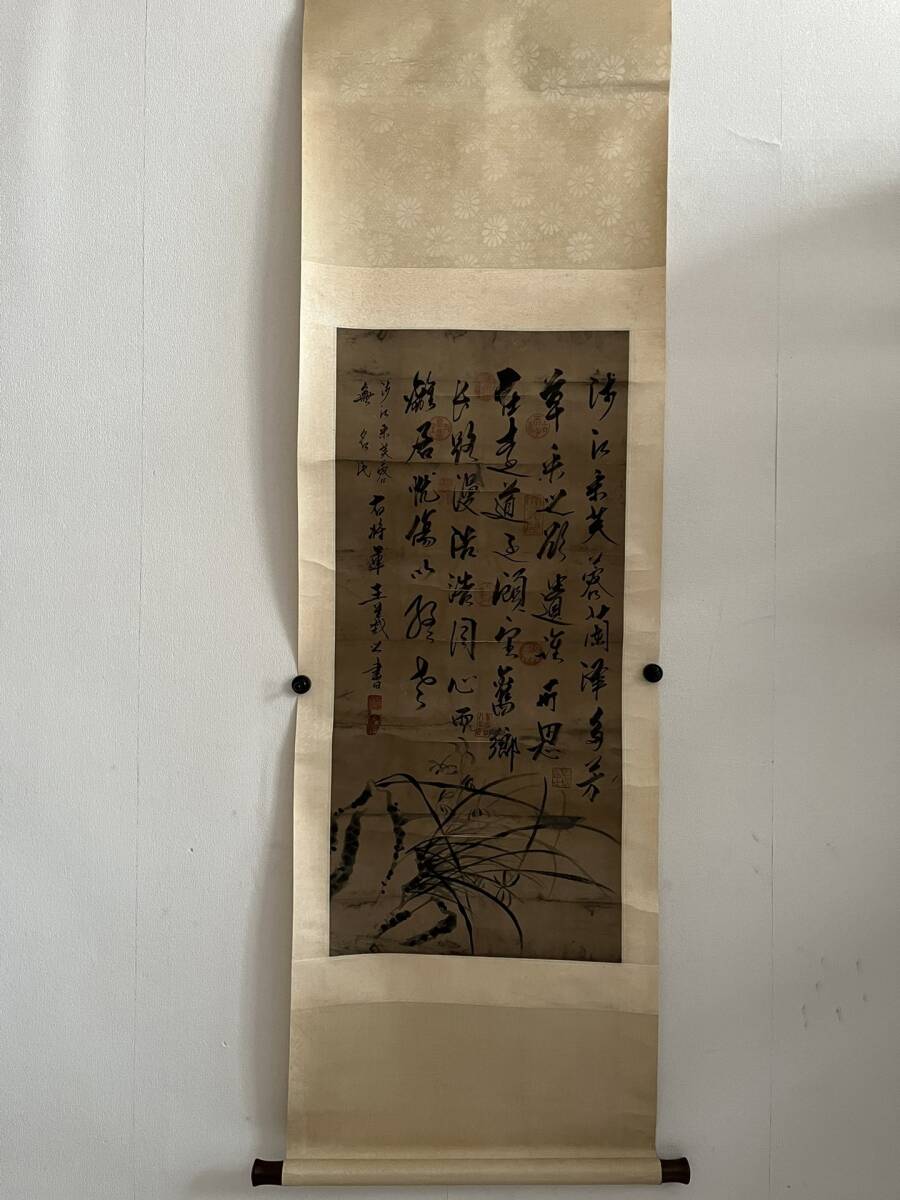 涉江采芙蓉蘭澤多芳
草采之欲遺誰所思
在遠道還顧望舊鄉
長路漫浩浩同心而
離居憂傷以終老
涉江采芙蓉
無名氏
右將軍王羲之書